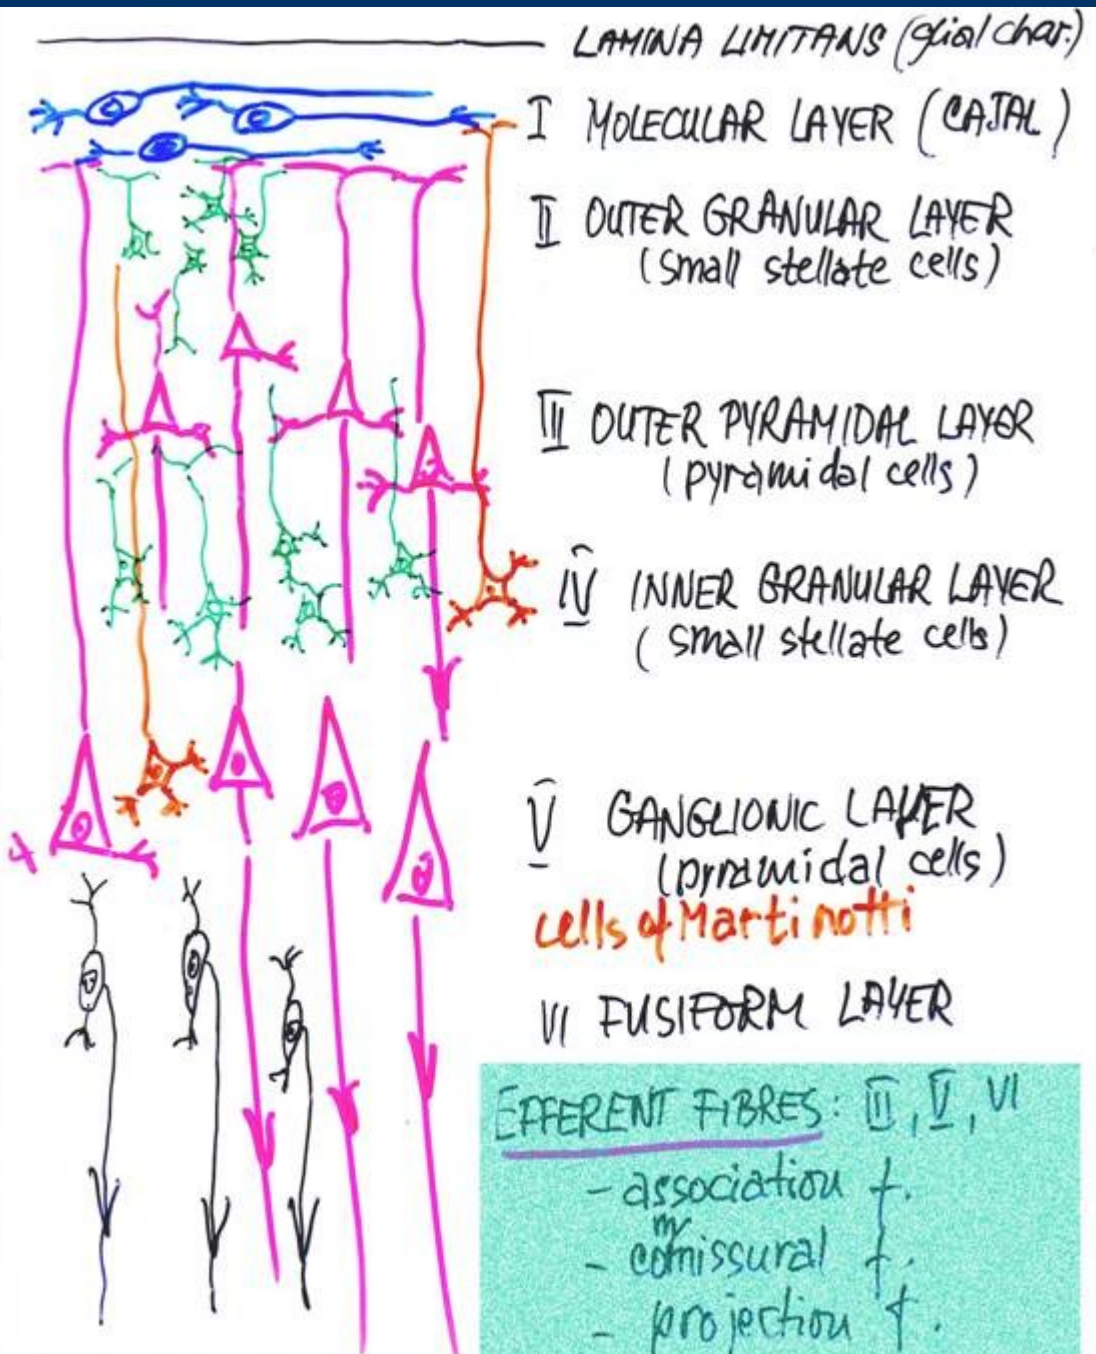 LAMINA LIMITANS (glial char.)
I MOLECULAR LAYER (CAJAL)
II OUTER GRANULAR LAYER
(small stellate cells)
III OUTER PYRAMIDAL LAYER
(pyramidal cells)
IV INNER GRANULAR LAYER
(small stellate cells)
V GANGLIONIC LAYER
(pyramidal cells)
cells of Martinotti
VI FUSIFORM LAYER
EFFERENT FIBRES: III, V, VI
- association f.
- commissural f.
- projection f.